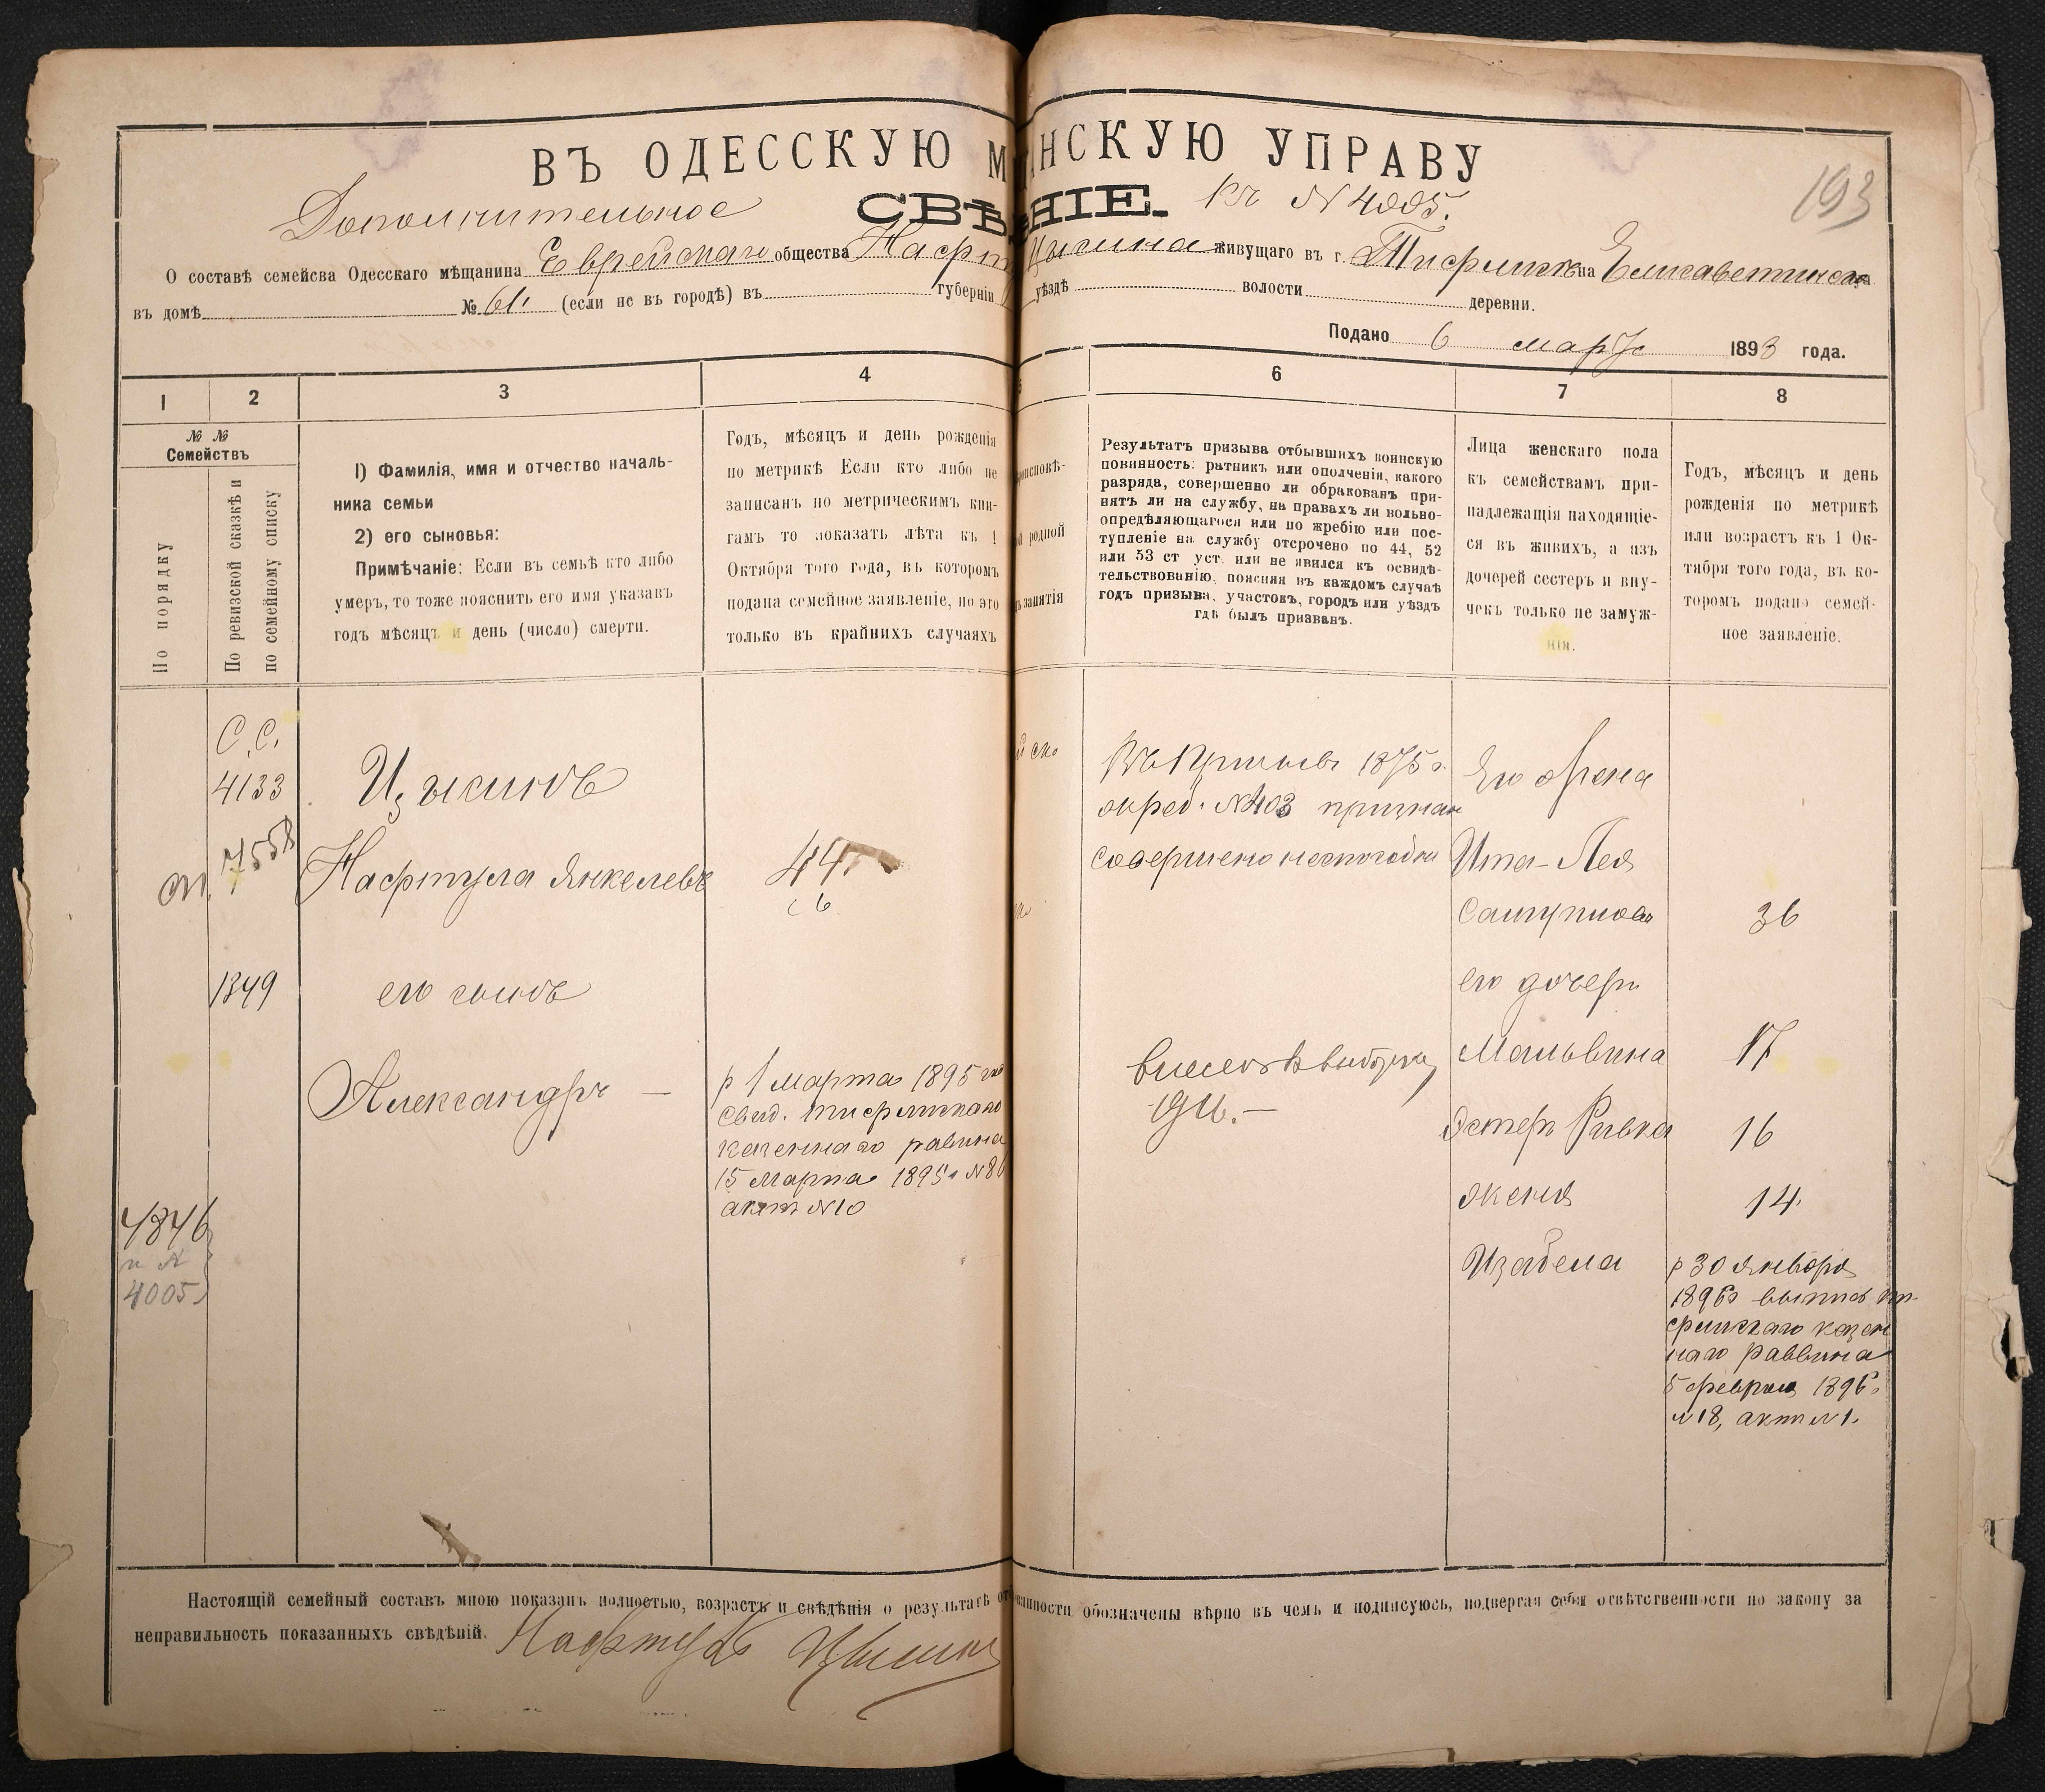 ВЪ ОДЕССКУЮ М НСКУЮ УПРАВУ
193
Дополнительное СВѢ НІЕ. Къ N 4005.
О составѣ семейсва Одесскаго мѣщанина Еврейскаго общества Нафт Цысина живущаго въ г. Тифлисѣ на Елисаветинская
въ домѣ № 61. (если не въ городѣ) въ губерніи уѣздѣ волости деревни.
Подано 6 марта 1898 года.
1 2 3 4 5 6 7 8
№ №
Семействъ
По порядку
По ревизской сказкѣ и
по семейному списку
1) Фамилія, имя и отчество началь-
ника семьи
2) его сыновья:
Примѣчаніе: Если въ семьѣ кто либо
умеръ, то тоже пояснить его имя указавъ
годъ мѣсяцъ и день (число) смерти.
Годъ, мѣсяцъ и день рожденія
по метрикѣ Если кто либо не
записанъ по метрическимъ кни-
гамъ то показать лѣта къ 1
Октября того года, въ которомъ
подана семейное заявленіе, но это
только въ крайнихъ случаяхъ
родной
занятія
Результатъ призыва отбывшихъ воинскую
повинность: ратникъ или ополченія, какого
разряда, совершенно ли обракованъ при-
нятъ ли на службу, на правахъ ли вольно-
опредѣляющагося или по жребію или пос-
тупленіе на службу отсрочено по 44, 52
или 53 ст уст. или не явился къ освидѣ-
тельствованію, поясняя въ каждомъ случаѣ
годъ призыва, участокъ, городъ или уѣздъ
гдѣ былъ призванъ.
Лица женскаго пола
къ семействамъ при-
надлежащія находящіе-
ся въ живихъ, а изъ
дочерей сестеръ и вну-
чекъ только не замуж-
нія.
Годъ, мѣсяцъ и день
рожденія по метрикѣ
или возрастъ къ 1 Ок-
тября того года, въ ко-
торомъ подано семей-
ное заявленіе.
С. С.
4133
7558
1349
4346
и N
4005
Цысинъ
Нафтула Янкелевъ
его сынъ
Александръ —
44
р 1 марта 1895 го
свид. Тифлискаго
казеннаго равина
15 марта 1895 г N 8
актъ N 10
Въ Призывъ 1875 г.
опред. N 403 признан
совершено неспособн
Его жена
Ита-Лея
36
его дочери
Мальвина 17
Эстеръ Ривка 16
Женя 14.
Изабела
р 30 января
1896 г выпись ти-
флискаго казен
наго раввина
5 февраля 1896 г
N 18, актъ N 1.
Настоящій семейный составъ мною показанъ полностью, возрастъ и свѣдѣнія о результатѣ от винности обозначены вѣрно въ чемъ и подписуюсь, подвергая себя отвѣтственности по закону за
неправильность показанныхъ свѣдѣній. Нафтулъ Цысин